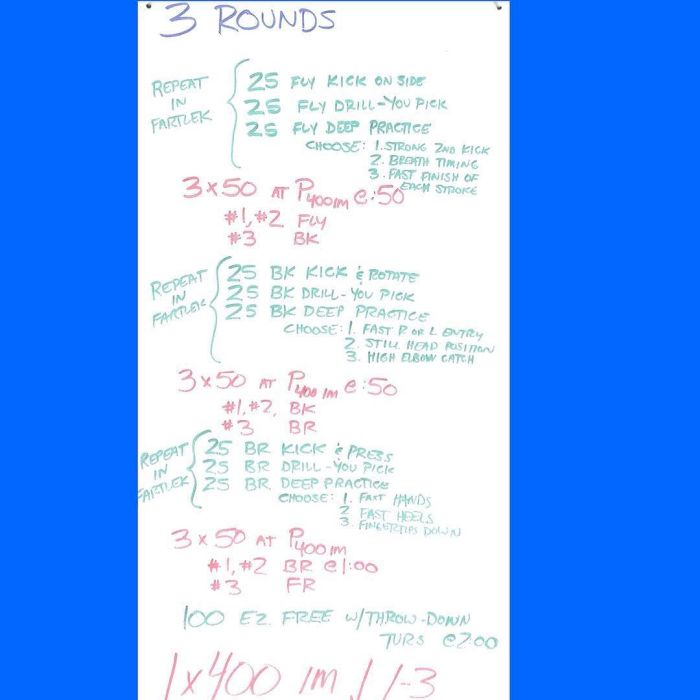 3 ROUNDS
REPEAT IN FARTLEK
25 FLY KICK ON SIDE
25 FLY DRILL-YOU PICK
25 FLY DEEP PRACTICE
CHOOSE: 1. STRONG 2ND KICK
2. BREATH TIMING
3. FAST FINISH OF EACH STROKE
3x50 AT P400IM @:50
#1,#2 FLY
#3 BK
REPEAT IN FARTLEK
25 BK KICK & ROTATE
25 BK DRILL-YOU PICK
25 BK DEEP PRACTICE
CHOOSE: 1. FAST R OR L ENTRY
2. STILL HEAD POSITION
3. HIGH ELBOW CATCH
3x50 AT P400 IM @:50
#1,#2, BK
#3 BR
REPEAT IN FARTLEK
25 BR KICK & PRESS
25 BR DRILL-YOU PICK
25 BR DEEP PRACTICE
CHOOSE: 1. FAST HANDS
2 FAST HEELS
3. FINGERTIPS DOWN
3x50 AT P400IM
#1,#2 BR @1:00
#3 FR
100 EZ FREE W/THROW-DOWN
TURS @2:00
1x400 IM